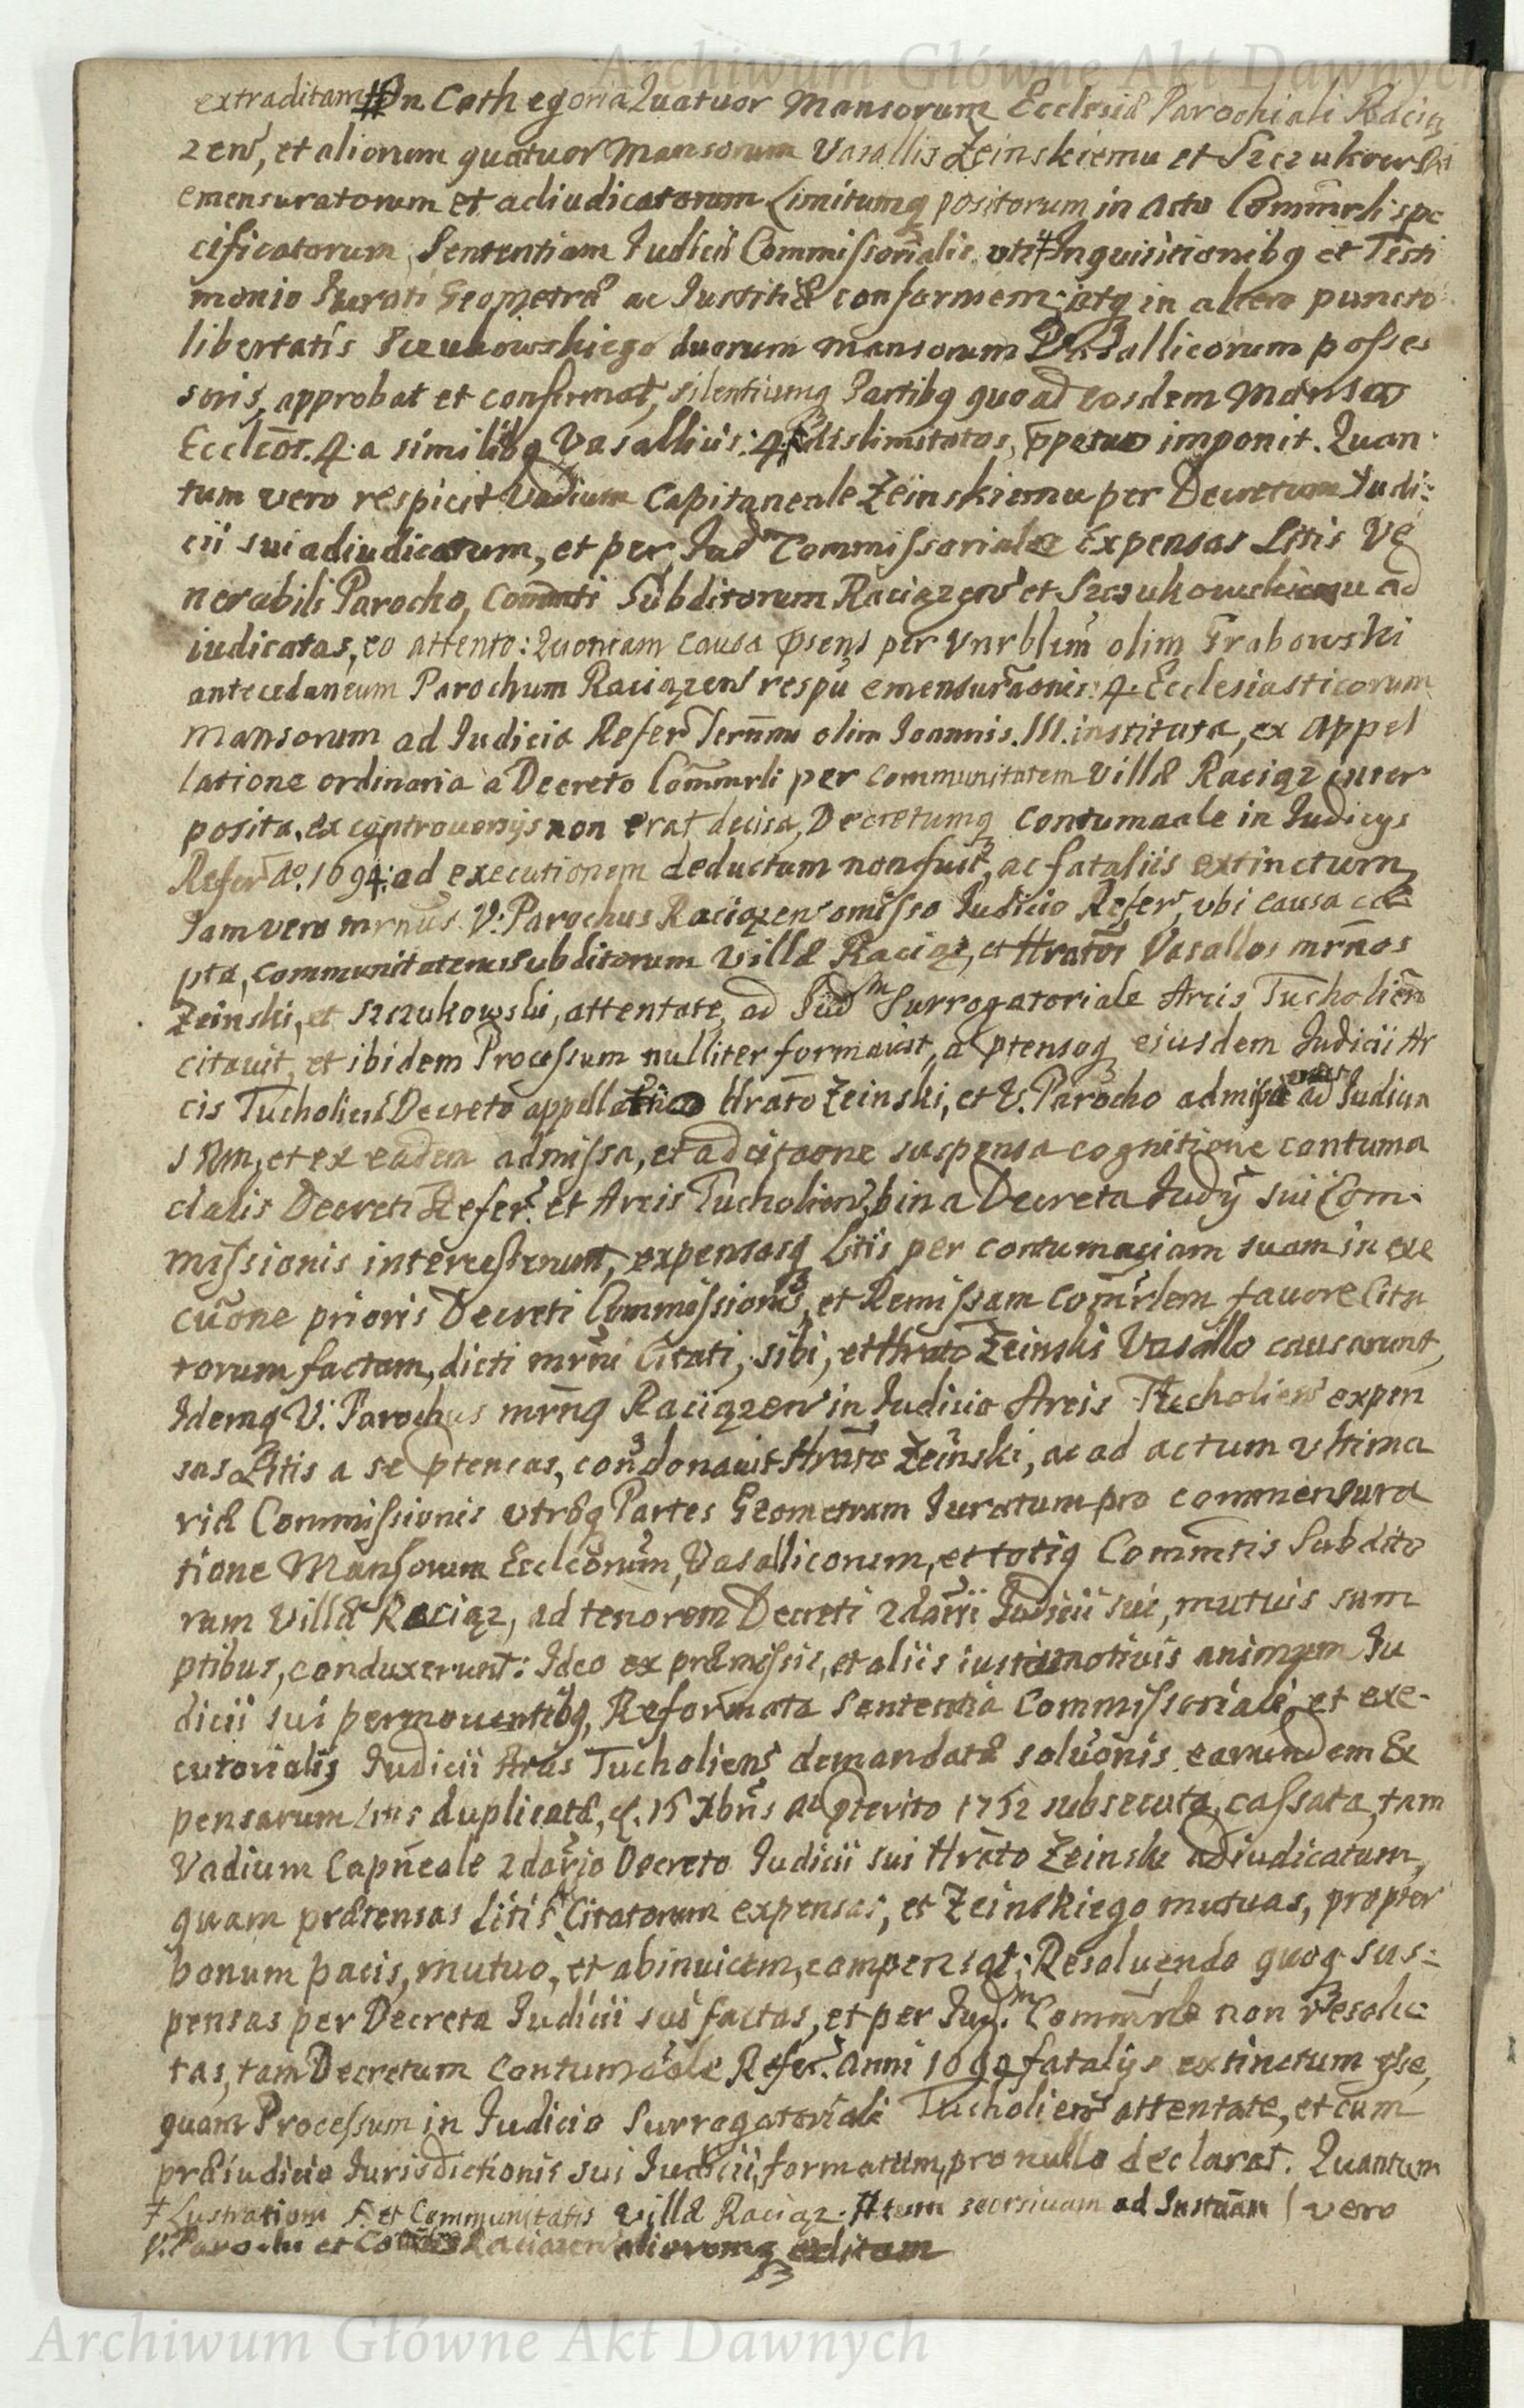 Archiwum Główne Akt Dawnych
extraditam # In Cathegoria Quatuor Mansorum Ecclesiæ Parochiali Raciąż
zen, et aliorum quatuor Mansorum Vasallis Zeinskiemu et Szczukowski
emensuratorum et adiudicatorum Limitumq positorum in acto Commrli spe
cificatorum, Sententiam Judicii Commissorialis, uti ‡ Inquisitionibq et Testi
monio Jurati Geometræ ac Justitiæ conformem, atq in altero puncto
libertatis Szczukowskiego duorum mansorum Vasallicorum posses
soris, approbat et confirmat, silentiumq Partibq quoad eosdem Mansos
Eccleor. 4. a similibq Vasalliis: 4. dislimitatos, ppetuo imponit. Quan
tum vero respicit Vadium Capitaneale Zeinskiemu per Decretum Judi:
cii sui adiudicatum, et per Judm Commissoriale Expensas Litis Ve
nerabili Parocho, Commti Subditorum Raciązen et Szczukowskiemu ad
iudicatas, eo attento: Quoniam causa psens per Vnrblem olim Grabowski
antecedaneum Parochum Raciązen respu emensuraonis: 4. Ecclesiasticorum
Mansorum ad Judicia Refer Sernmi olim Joannis. III. instituta, ex appel
latione ordinaria a Decreto Commrli per communitatem Villæ Raciąz inter
posita, ex controuersijs non erat decisa, Decretumq contumaale in Judicys
Refer Ao. 1694. ad executionem deductum non fuit, ac fataliis extinctum,
Jam vero mrnus V: Parochus Raciązen omisso Judicio Refer, vbi causa cæ
pta, communitatem subditorum Villæ Raciąz, et Hratos Vasallos mrnos
Zeinski, et Szczukowski, attentate, ad Judm Surrogatoriale Arcis Tucholien
citauit, et ibidem Processum nulliter formauit, a ptensoq eiusdem Judicii Ar
cis Tucholien Decreto appellatione Hrato Zeinski, et V. Parocho admissa ad Judicia
SRM, et ex eadem admissa, et adcitaone suspensa cognitione contuma
cialis Decreti Refer. et Arcis Tucholien, bina Decreta Judij sui Com
missionis intercesserunt, expensasq Litis per contumaciam suam in exe
cuone prioris Decreti Commissionis, et Remissam Commrlem fauore Cita
torum factam, dicti mrni Citati, sibi, et Hrato Zeinski Vasallo causarunt,
Idemq V: Parochus mrnq Raciązen in Judicio Arcis Tucholien expen
sas Litis a se ptensas, condonauit Hrato Zeinski, ac ad actum vltima
riæ Commissionis vtræq Partes Geometram Juratum pro commensura
tione Mansorum Eccleorum, Vasallicorum, et totiq Commtis Subdito
rum Villæ Raciąz, ad tenorem Decreti 2darii Judicii sui, mutuis sum
ptibus, conduxerunt: Ideo ex præmissis, et aliis iustis motiuis animum Ju
dicii sui permouentibq, Reformata Sententia Commissoriali, et exe-
cutorialis Judicii Arcis Tucholiens demandatæ soluonis earundem Ex
pensarum Litis duplicatæ, d. 15 Xbris Ao pterito 1752 subsecuta, cassata, tam
Vadium Capneale 2dario Decreto Judicii sui Hrato Zeinski adiudicatum,
quam prætensas Litis Citatorum expensas, et Zeinskiego mutuas, propter
bonum pacis, mutuo, et abinuicem, compensat; Resoluendo quoq sus:
pensas per Decreta Judicii sui factas, et per Judm. Commrle non resolu:
tas, tam Decretum Contumaciale Refer. Anni 1694 fatalijs extinctum esse,
quam Processum in Judicio Surrogatoriali Tucholien attentate, et cum
præiudicio Jurisdictionis sui Judicii, formatum, pro nullo declarat. Quantum
‡ Lustrationi et Communitatis Villæ Raciąz. # tum seorsiuam ad Instaam / vero
V. Parochi et Raciązen aliorumq editam
Archiwum Główne Akt Dawnych